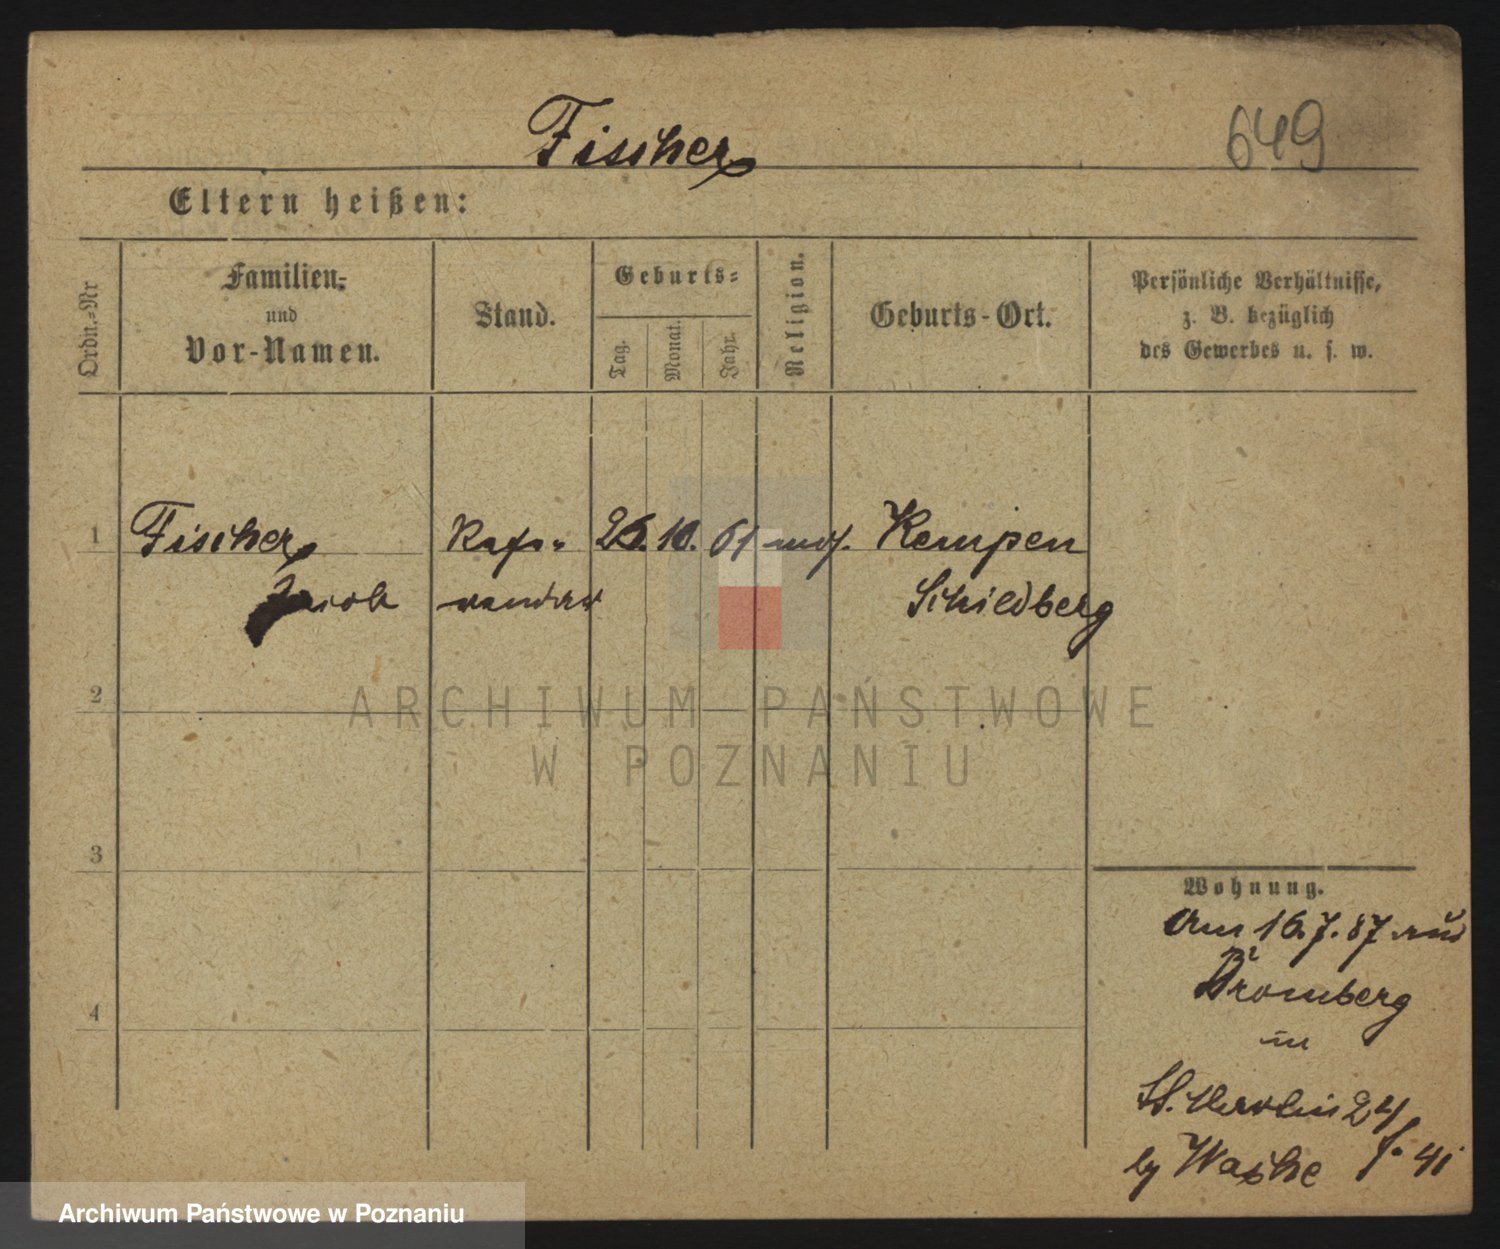 Fischer
649
Eltern heißen:
Ordn.=Nr
Familien=
und
Vor-Namen.
Stand.
Geburts=
Tag.
Monat.
Jahr.
Religion.
Geburts-Ort.
Persönliche Verhältnisse,
z. B. bezüglich
des Gewerbes u. s. w.
1
Fischer
Jacob
Refe-
rendar
26. 10. 61 mos. Kempen
Schildberg
2
ARCHIWUM PAŃSTWOWE
W POZNANIU
3
Wohnung.
Am 16. 7. 87 aus
Bromberg
in
St. Martin 24
by
4
Archiwum Państwowe w Poznaniu